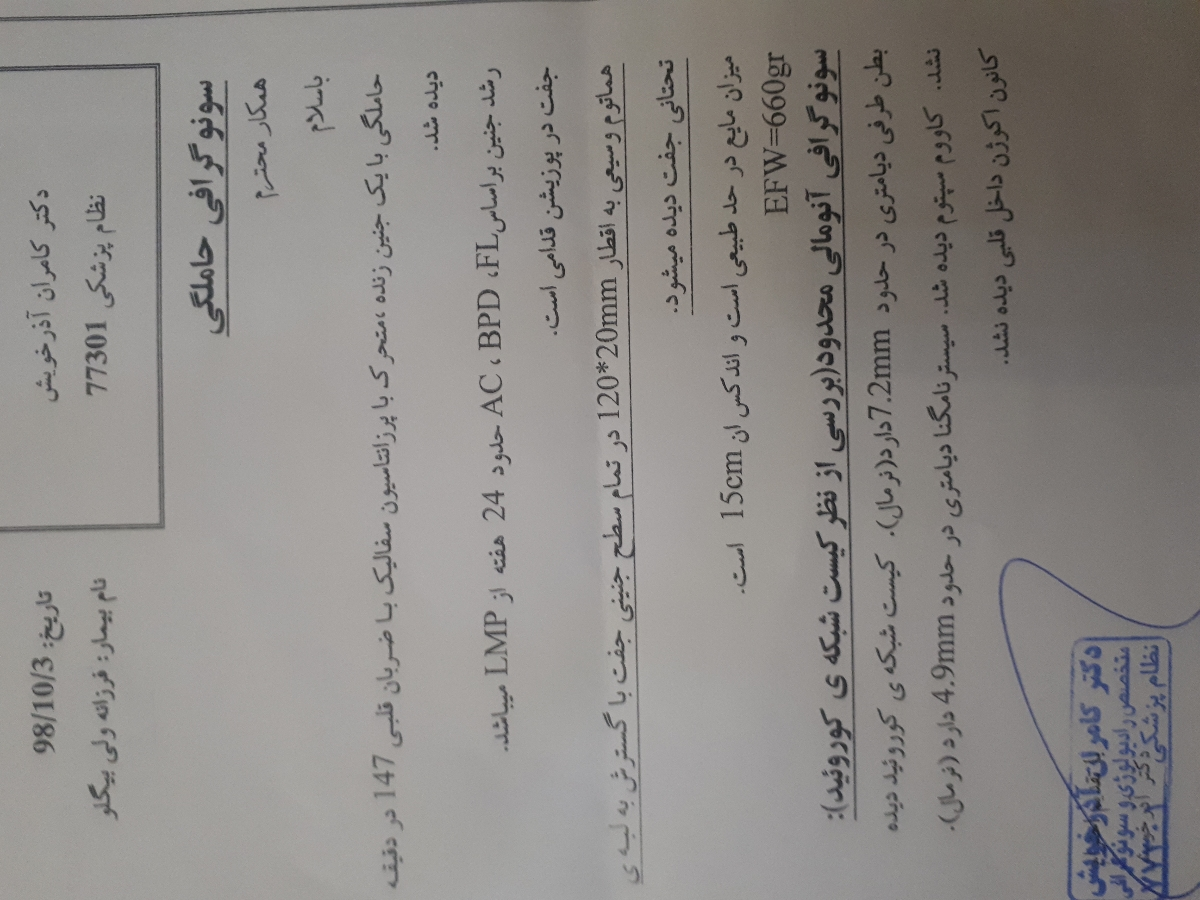 دکتر کامران آذرخویش
نظام پزشکی 77301
تاریخ: 98/10/3
نام بیمار: فرزانه ولی بیگلو
سونوگرافی حاملگی
همکار محترم
باسلام
حاملگی با یک جنین زنده ،متحرک با پرزانتاسیون سفالیک با ضربان قلبی 147 در دقیقه
دیده شد.
رشد جنین براساس AC ، BPD ،FL حدود 24 هفته از LMP میباشد.
جفت در پوزیشن قدامی است.
هماتوم وسیعی به اقطار 120*20mm در تمام سطح جنینی جفت با گسترش به لبه ی
تحتانی جفت دیده میشود.
میزان مایع در حد طبیعی است و اندکس ان 15cm است.
EFW=660gr
سونوگرافی آنومالی محدود(بررسی از نظر کیست شبکه ی کوروئید):
بطن طرفی دیامتری در حدود 7.2mm دارد(نرمال). کیست شبکه ی کوروئید دیده
نشد. کاووم سپتوم دیده شد. سیسترنامگنا دیامتری در حدود 4.9mm دارد (نرمال).
کانون اکوژن داخل قلبی دیده نشد.
دکتر کامران آذرخویش
متخصص رادیولوژی و سونوگرافی
نظام پزشکی